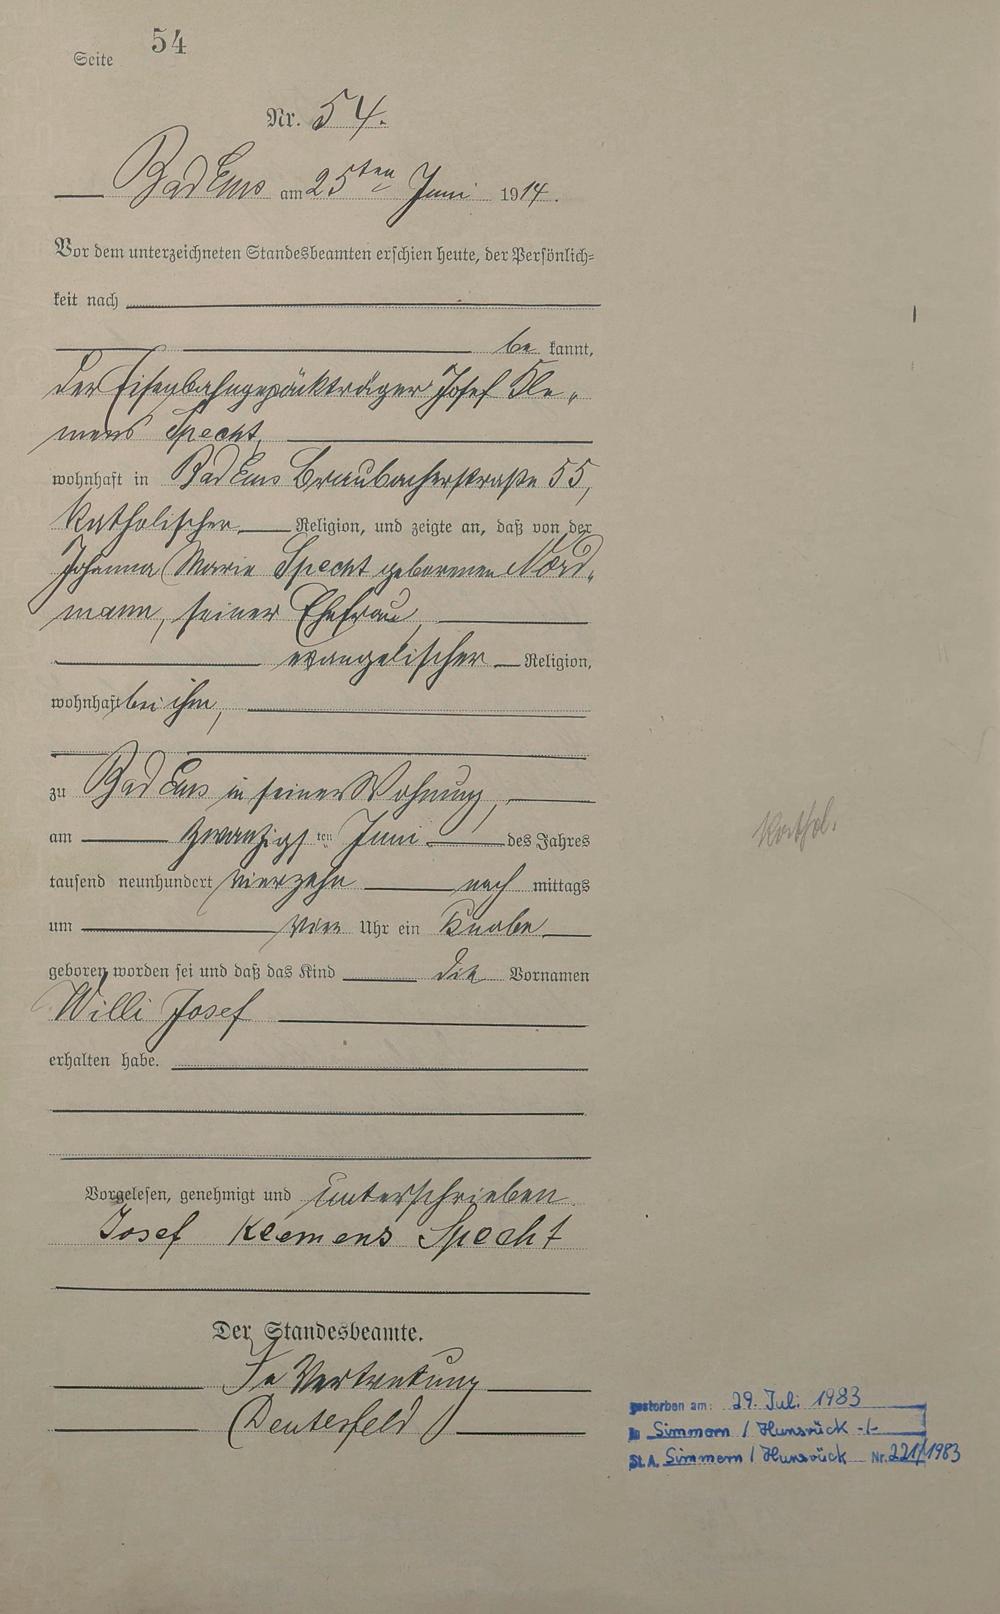 Seite 54
Nr. 54.
Bad Ems am 25ten Juni 1914.
Vor dem unterzeichneten Standesbeamten erschien heute, der Persönlich-
keit nach
be kannt,
der Eisenbahngepäckträger Josef Kle-
mens Specht,
wohnhaft in Bad Ems Braubacherstraße 55,
katholischer Religion, und zeigte an, daß von der
Johanna Marie Specht geborenen Nord-
mann, seiner Ehefrau,
evangelischer Religion,
wohnhaft bei ihm,
zu Bad Ems in seiner Wohnung,
am zwanzigsten Juni des Jahres
tausend neunhundert vierzehn nach mittags
um vier Uhr ein Knabe
geboren worden sei und daß das Kind die Vornamen
Willi Josef
erhalten habe.
Vorgelesen, genehmigt und unterschrieben
Josef Klemens Specht
Der Standesbeamte.
In Vertretung
Deuterfeld
Kathol.
gestorben am: 29. Juli 1983
in Simmern / Hunsrück -/-
St.A. Simmern / Hunsrück Nr. 221/1983